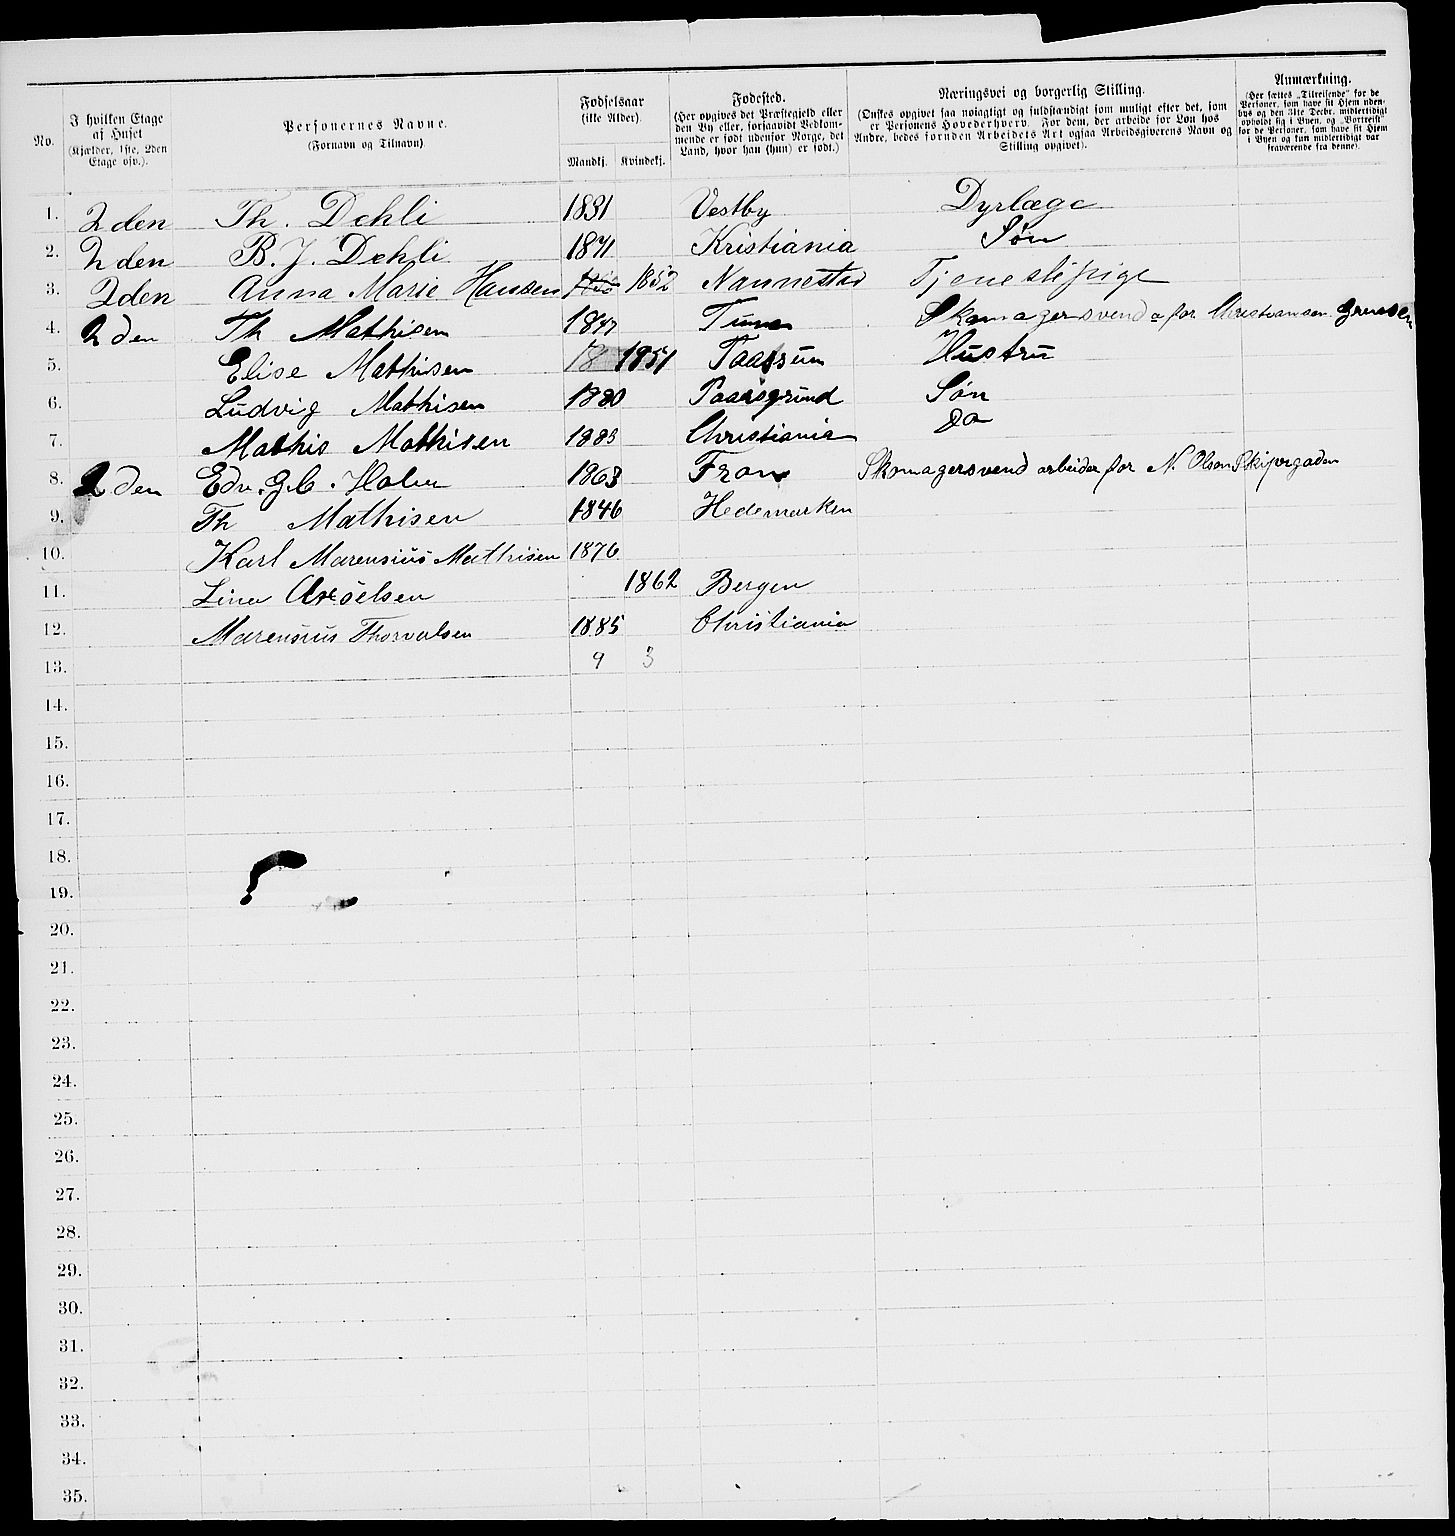 No.
I hvilken Etage af Huset (Kjælder, 1ste, 2den Etage osv.).
Personernes Navne. (Fornavn og Tilnavn)
Fødselsaar (ikke Alder). Mandkj. Kvindekj.
Fødested. (Her opgives det Præstegjeld eller den By eller, forsaavidt Vedkommende er født udenfor Norge, det Land, hvor han (hun) er født.)
Næringsvei og borgerlig Stilling. (Ønskes opgivet saa nøiagtigt og fuldstændigt som muligt efter det, som er Personens Hovederhverv. For dem, der arbeide for Løn hos Andre, bedes foruden Arbeidets Art ogsaa Arbeidsgiverens Navn og Stilling opgivet).
Anmærkning. (Her sættes „Tilreisende“ for de Personer, som have sit Hjem udenbys og den 31te Decbr. midlertidigt opholdt sig i Byen, og „Bortreist“ for de Personer, som have sit Hjem i Byen og kun midlertidigt var fraværende fra denne).
1. 2den Th. Dehli 1831 Vestby Dyrlæge
2. 2den B. J. Dehli 1871 Kristiania Søn
3. 2den Anna Marie Hansen 1852 Nannestad Tjenestepige
4. 2den Th Mathisen 1847 Tune Skomagersvend a for Christiansen Grensen
5. Elise Mathisen 18 1851 Hustru
6. Ludvig Mathisen 1880 Paarsgrund Søn
7. Mathis Mathisen 1883 Christiania Do
8. 2den Edv. G.C. Holm 1863 Fron Skomagersvend arbeider for N. Olsen Skipergaden
9. Th Mathisen 1846 Hedemarken
10. Karl Marensius Mathisen 1876
11. Lina Axselsen 1862 Bergen
12. Marensius Thorvalsen 1885 Christiania
13. 9 3
14.
15.
16.
17.
18.
19.
20.
21.
22.
23.
24.
25.
26.
27.
28.
29.
30.
31.
32.
33.
34.
35.